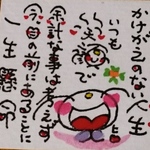 かけがえのない人生
いつも
笑顔で
余計な事は考えず
今目の前にあることに
一生懸命